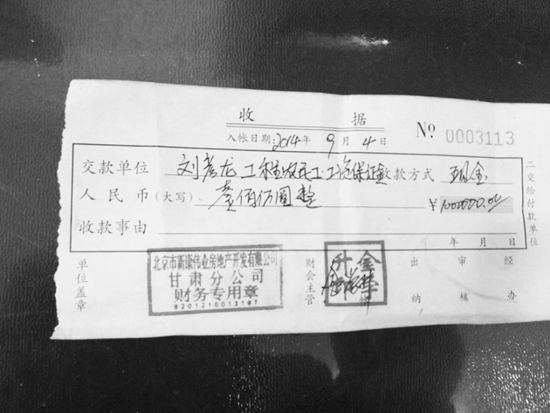 收 据
入帐日期:2014年 9月 4日 № 0003113
交款单位 刘孝龙工程农民工工资保证金 收款方式 现金
人民币(大写) 壹佰万圆整 ¥1000000.00
收款事由
年 月 日
二交给付款单位
单位盖章
北京市新康伟业房地产开发有限公司
甘肃分公司
财务专用章
6201210013187
财会主管
金
出纳
审核
经办